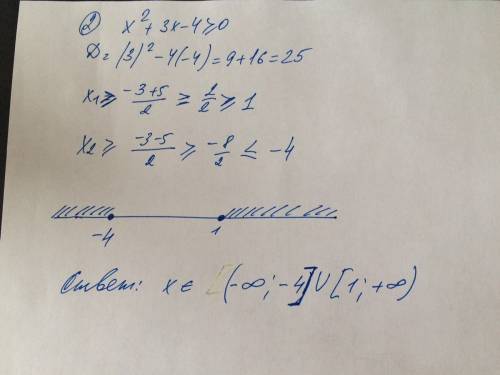 ② x² + 3x - 4 ≥ 0
D = (3)² - 4(-4) = 9 + 16 = 25
x₁ ≥ (-3+5)/2 ≥ 2/2 ≥ 1
x₂ ≥ (-3-5)/2 ≥ -8/2 ≤ -4
-4 1
Ответ: x ∈ [(-∞; -4] ∪ [1; +∞)